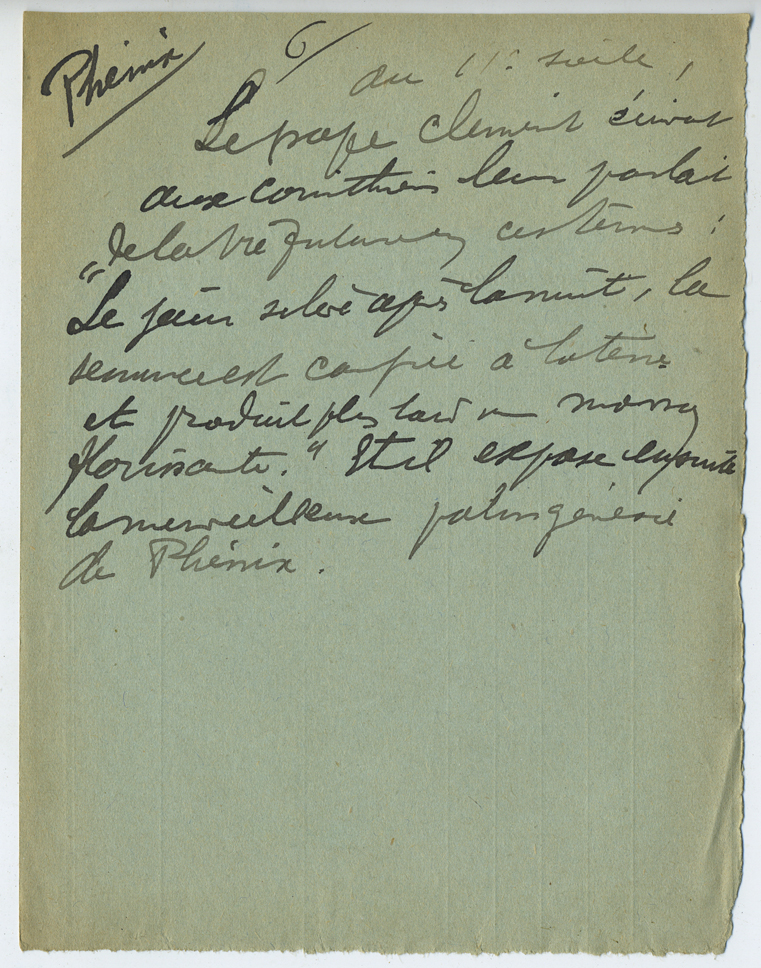 Phénix
6/
au 11e siècle,
Le pape Clement écrivant
aux corinthiens leur parlait
de la vie future en ces termes :
"Le jour se lève après la nuit, la
semence est confiée à la terre
et produit plus tard une moisson
florissante." Et il expose ensuite
la merveilleuse palingénésie
de Phénix.